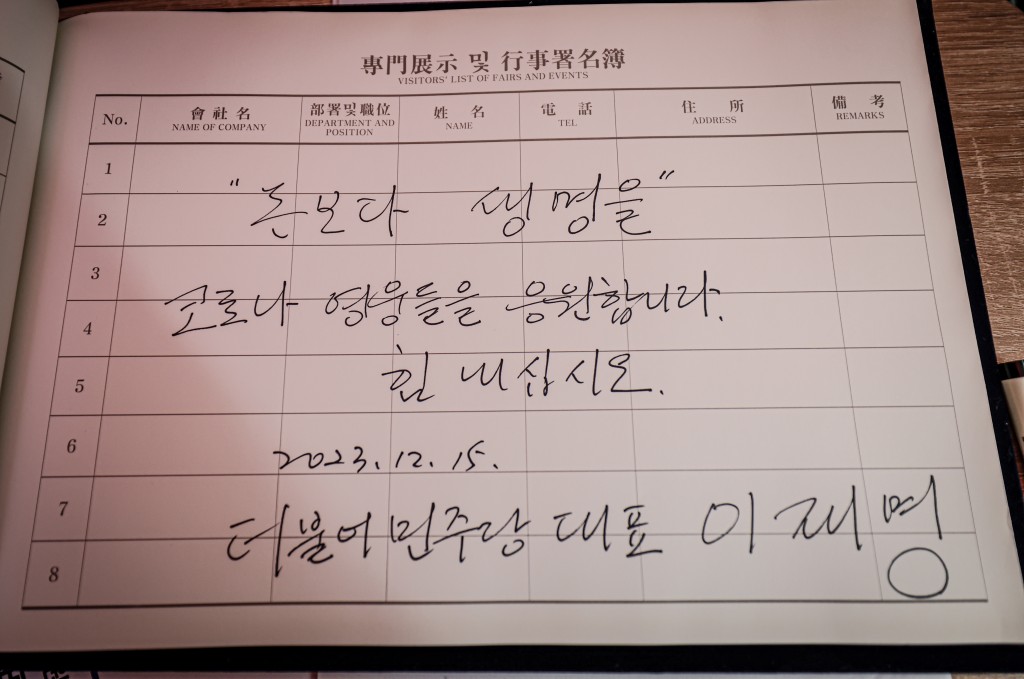 專門展示 및 行事署名簿
VISITORS' LIST OF FAIRS AND EVENTS
No. 會社名 部署및職位 姓名 電話 住所 備考
NAME OF COMPANY DEPARTMENT AND POSITION NAME TEL ADDRESS REMARKS
1
"돈보다 생명을"
2
3
코로나 영웅들을 응원합니다.
4
힘 내십시오.
5
6
2023. 12. 15.
7
더불어민주당 대표 이재명
8